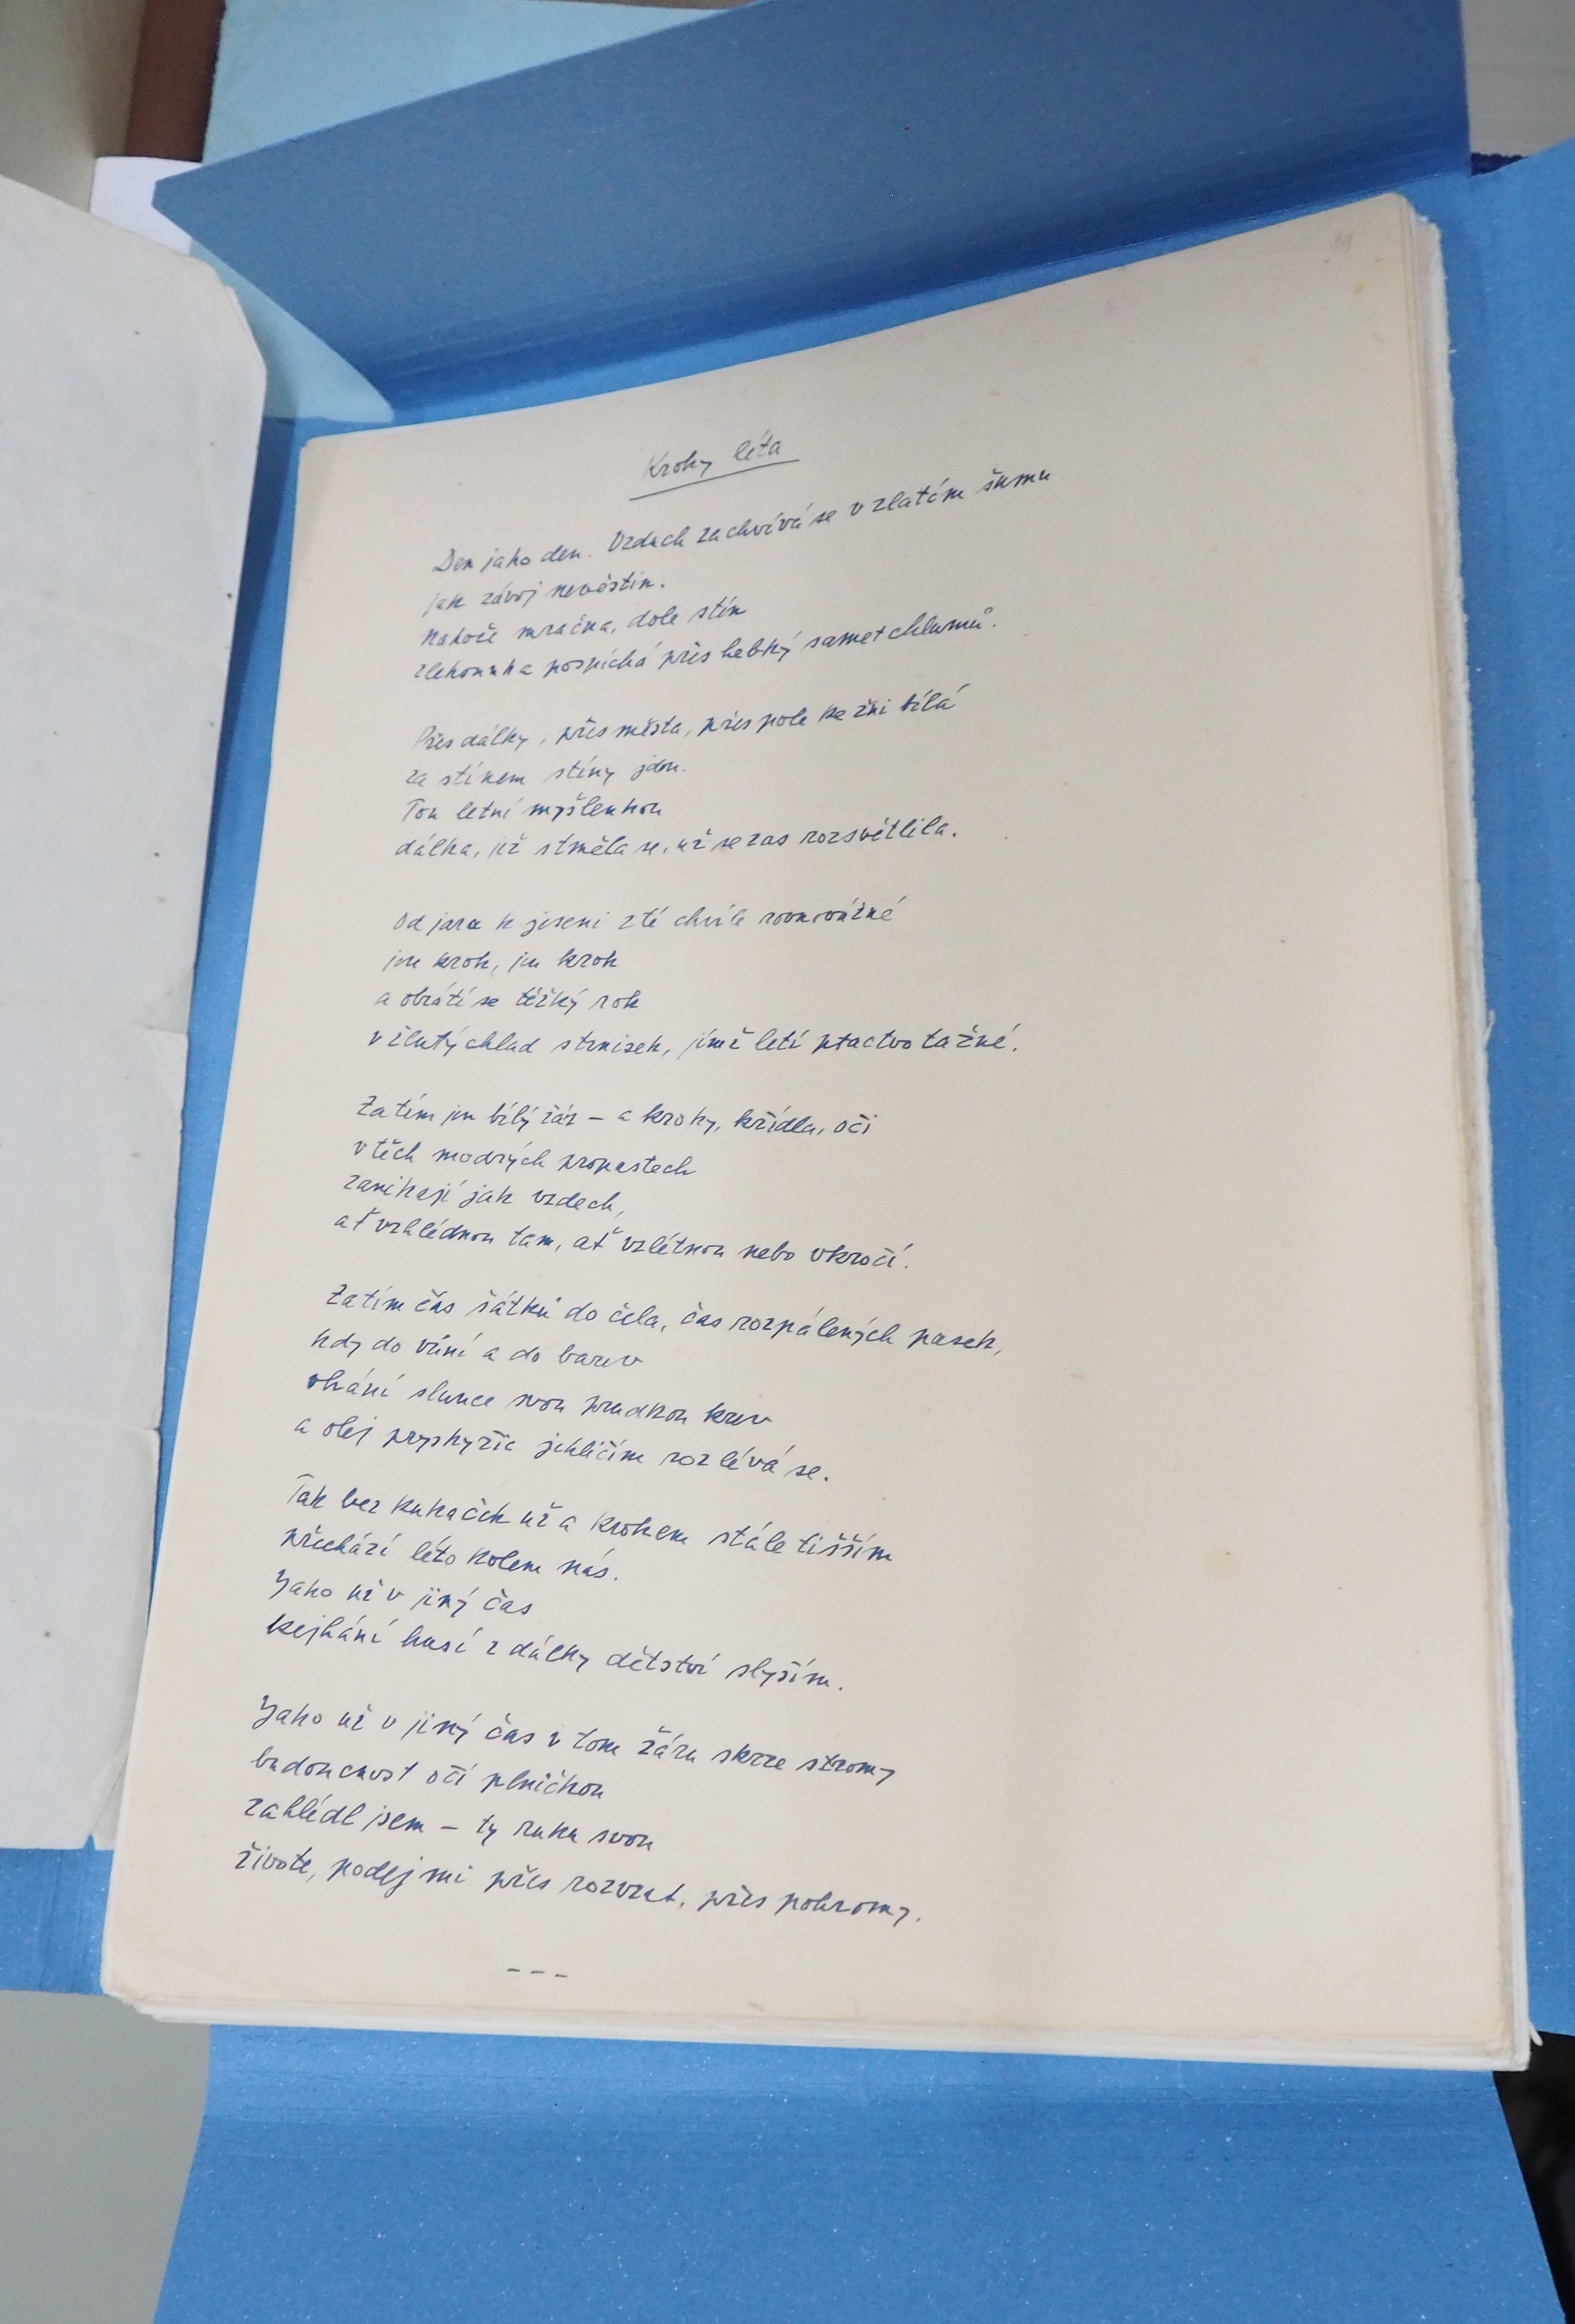 Kroky léta
Den jako den. Vzduch zachvívá se v zlatém šumu
jak závoj nevěstin.
Nahoře mračna, dole stín
zlehounka pospíchá přes hebký samet chlumů.
Přes dálky, přes města, přes pole ke žni bílá
za stínem stíny jdou.
Tou letní myšlenkou
dálka, již stměla se, už se zas rozsvětlila.
Od jara k jeseni z té chvíle rovnovážné
jen krok, jen krok
a obrátí se těžký rok
v žlutý chlad strnisek, jímž letí ptactvo tažné.
Zatím jen bílý žár – a kroky, křídla, oči
v těch modrých propastech
zanikají jak vzdech,
ať vzhlédnou tam, ať vzlétnou nebo vkročí.
Zatím čas šátků do čela, čas rozpálených pasek,
kdy do vůní a do barev
vhání slunce svou prudkou krev
a olej pryskyřic jehličím rozlévá se.
Tak bez kukaček už a krokem stále tišším
přechází léto kolem nás.
Jako už v jiný čas
kejhání husí z dálky dětství slyším.
Jako už v jiný čas v tom žáru skrze stromy
budoucnost očí plničkou
zahlédl jsem – ty ruku svou
živote, podej mi přes rozvrat, přes pohromy.
---